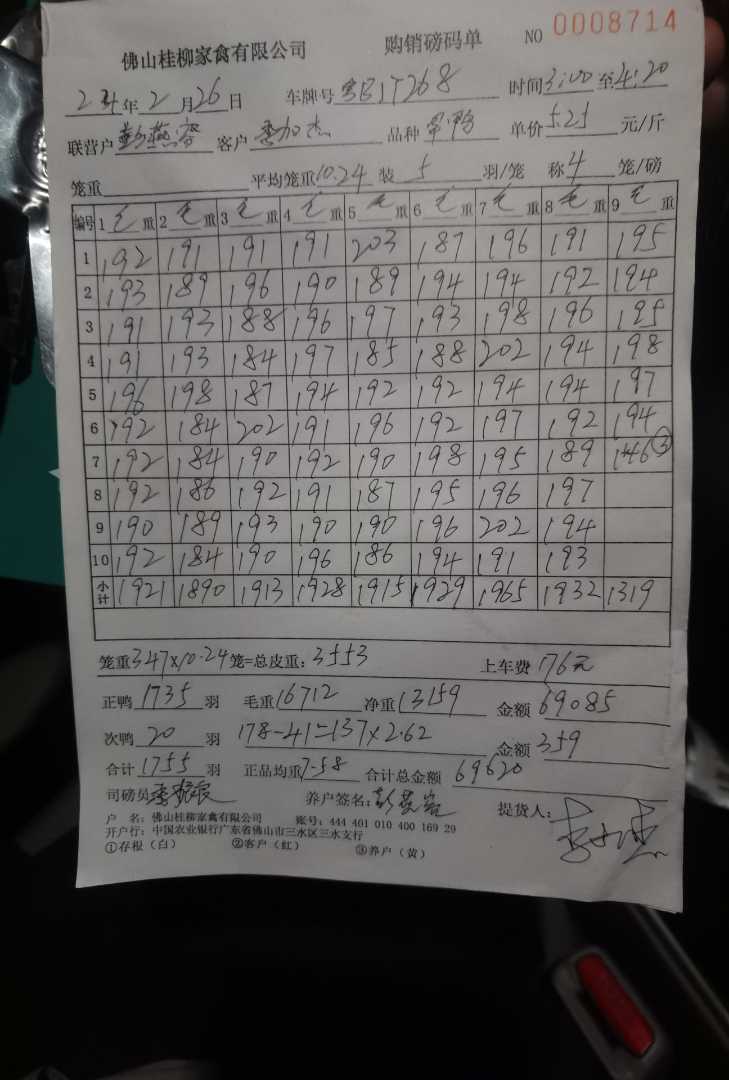 佛山桂柳家禽有限公司 购销磅码单 NO 0008714
24年2月26日 车牌号 时间3:00至4:20
联营户彭燕容 客户李加杰 品种 单价5.25元/斤
笼重 平均笼重10.24 装5羽/笼 称4笼/磅
编号 1毛重 2毛重 3毛重 4毛重 5毛重 6毛重 7毛重 8毛重 9毛重
1 192 191 191 191 203 187 196 191 195
2 193 189 196 190 189 194 194 192 194
3 191 193 188 196 197 193 198 196 195
4 191 193 184 197 185 188 202 194 198
5 196 198 187 194 192 192 194 194 197
6 192 184 202 191 196 192 197 192 194
7 192 184 190 192 190 198 195 189 146③
8 192 186 192 191 187 195 196 197
9 190 189 193 190 190 196 202 194
10 192 184 190 196 186 194 191 193
小计 1921 1890 1913 1928 1915 1929 1965 1932 1319
笼重347×10.24笼=总皮重:3553 上车费176元
正鸭1735羽 毛重16712 净重13159 金额69085
次鸭20羽 178-41=137×2.62 金额359
合计1755羽 正品均重7.58 合计总金额69620
司磅员 养户签名:彭燕容 提货人:
户 名:佛山桂柳家禽有限公司 账号:444 401 010 400 169 29
开户行:中国农业银行广东省佛山市三水区三水支行
①存根(白) ②客户(红) ③养户(黄)